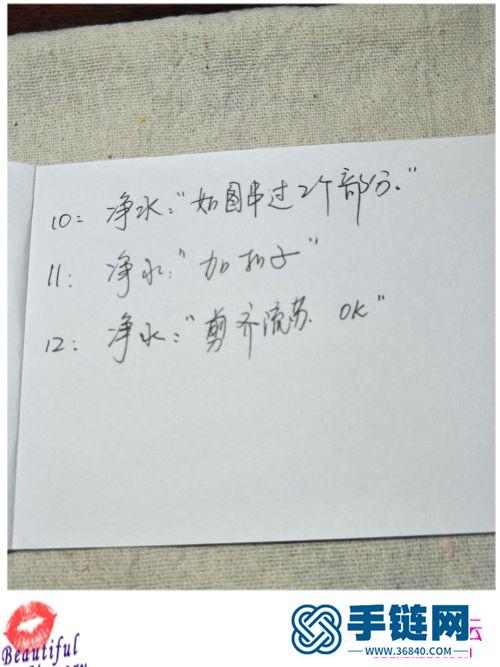 10: 净水:"如图串过2个部分."
11: 净水:"加扣子"
12: 净水:"剪齐流苏. OK"
Beautiful
手链网
www.36840.com
云